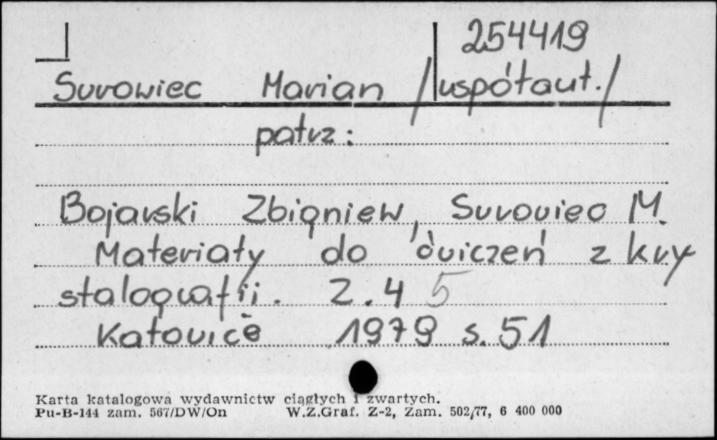 254419
Surowiec Marian /współaut./
patrz:
Bojarski Zbigniew, Surowiec M.
Materiały do ćwiczeń z kry
stalografii. Z.4 5
Katowice 1979 s. 51
Karta katalogowa wydawnictw ciągłych i zwartych.
Pu-B-144 zam. 567/DW/On W.Z.Graf. Z-2, Zam. 502/77, 6 400 000